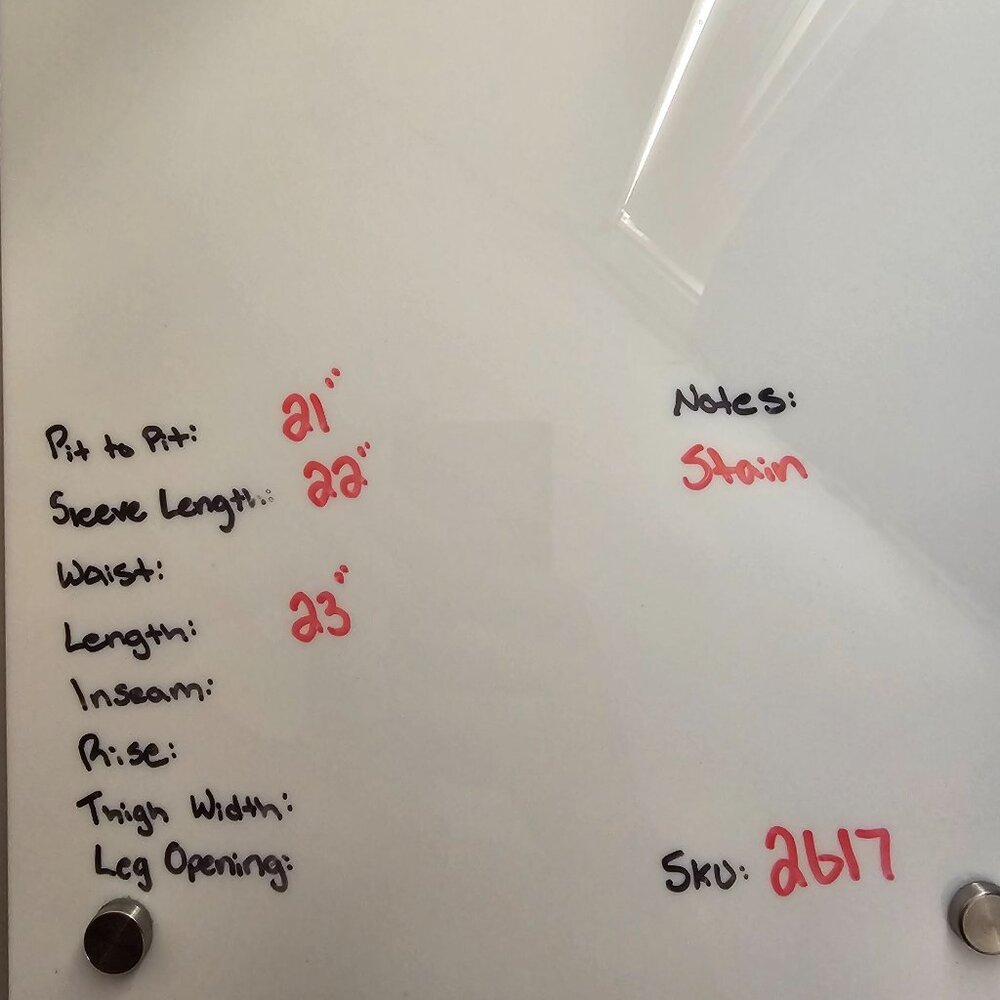 Pit to Pit: 21"
Sleeve Length: 22"
Waist:
Length: 23"
Inseam:
Rise:
Thigh Width:
Leg Opening:
Notes:
Stain
SKU: 2617